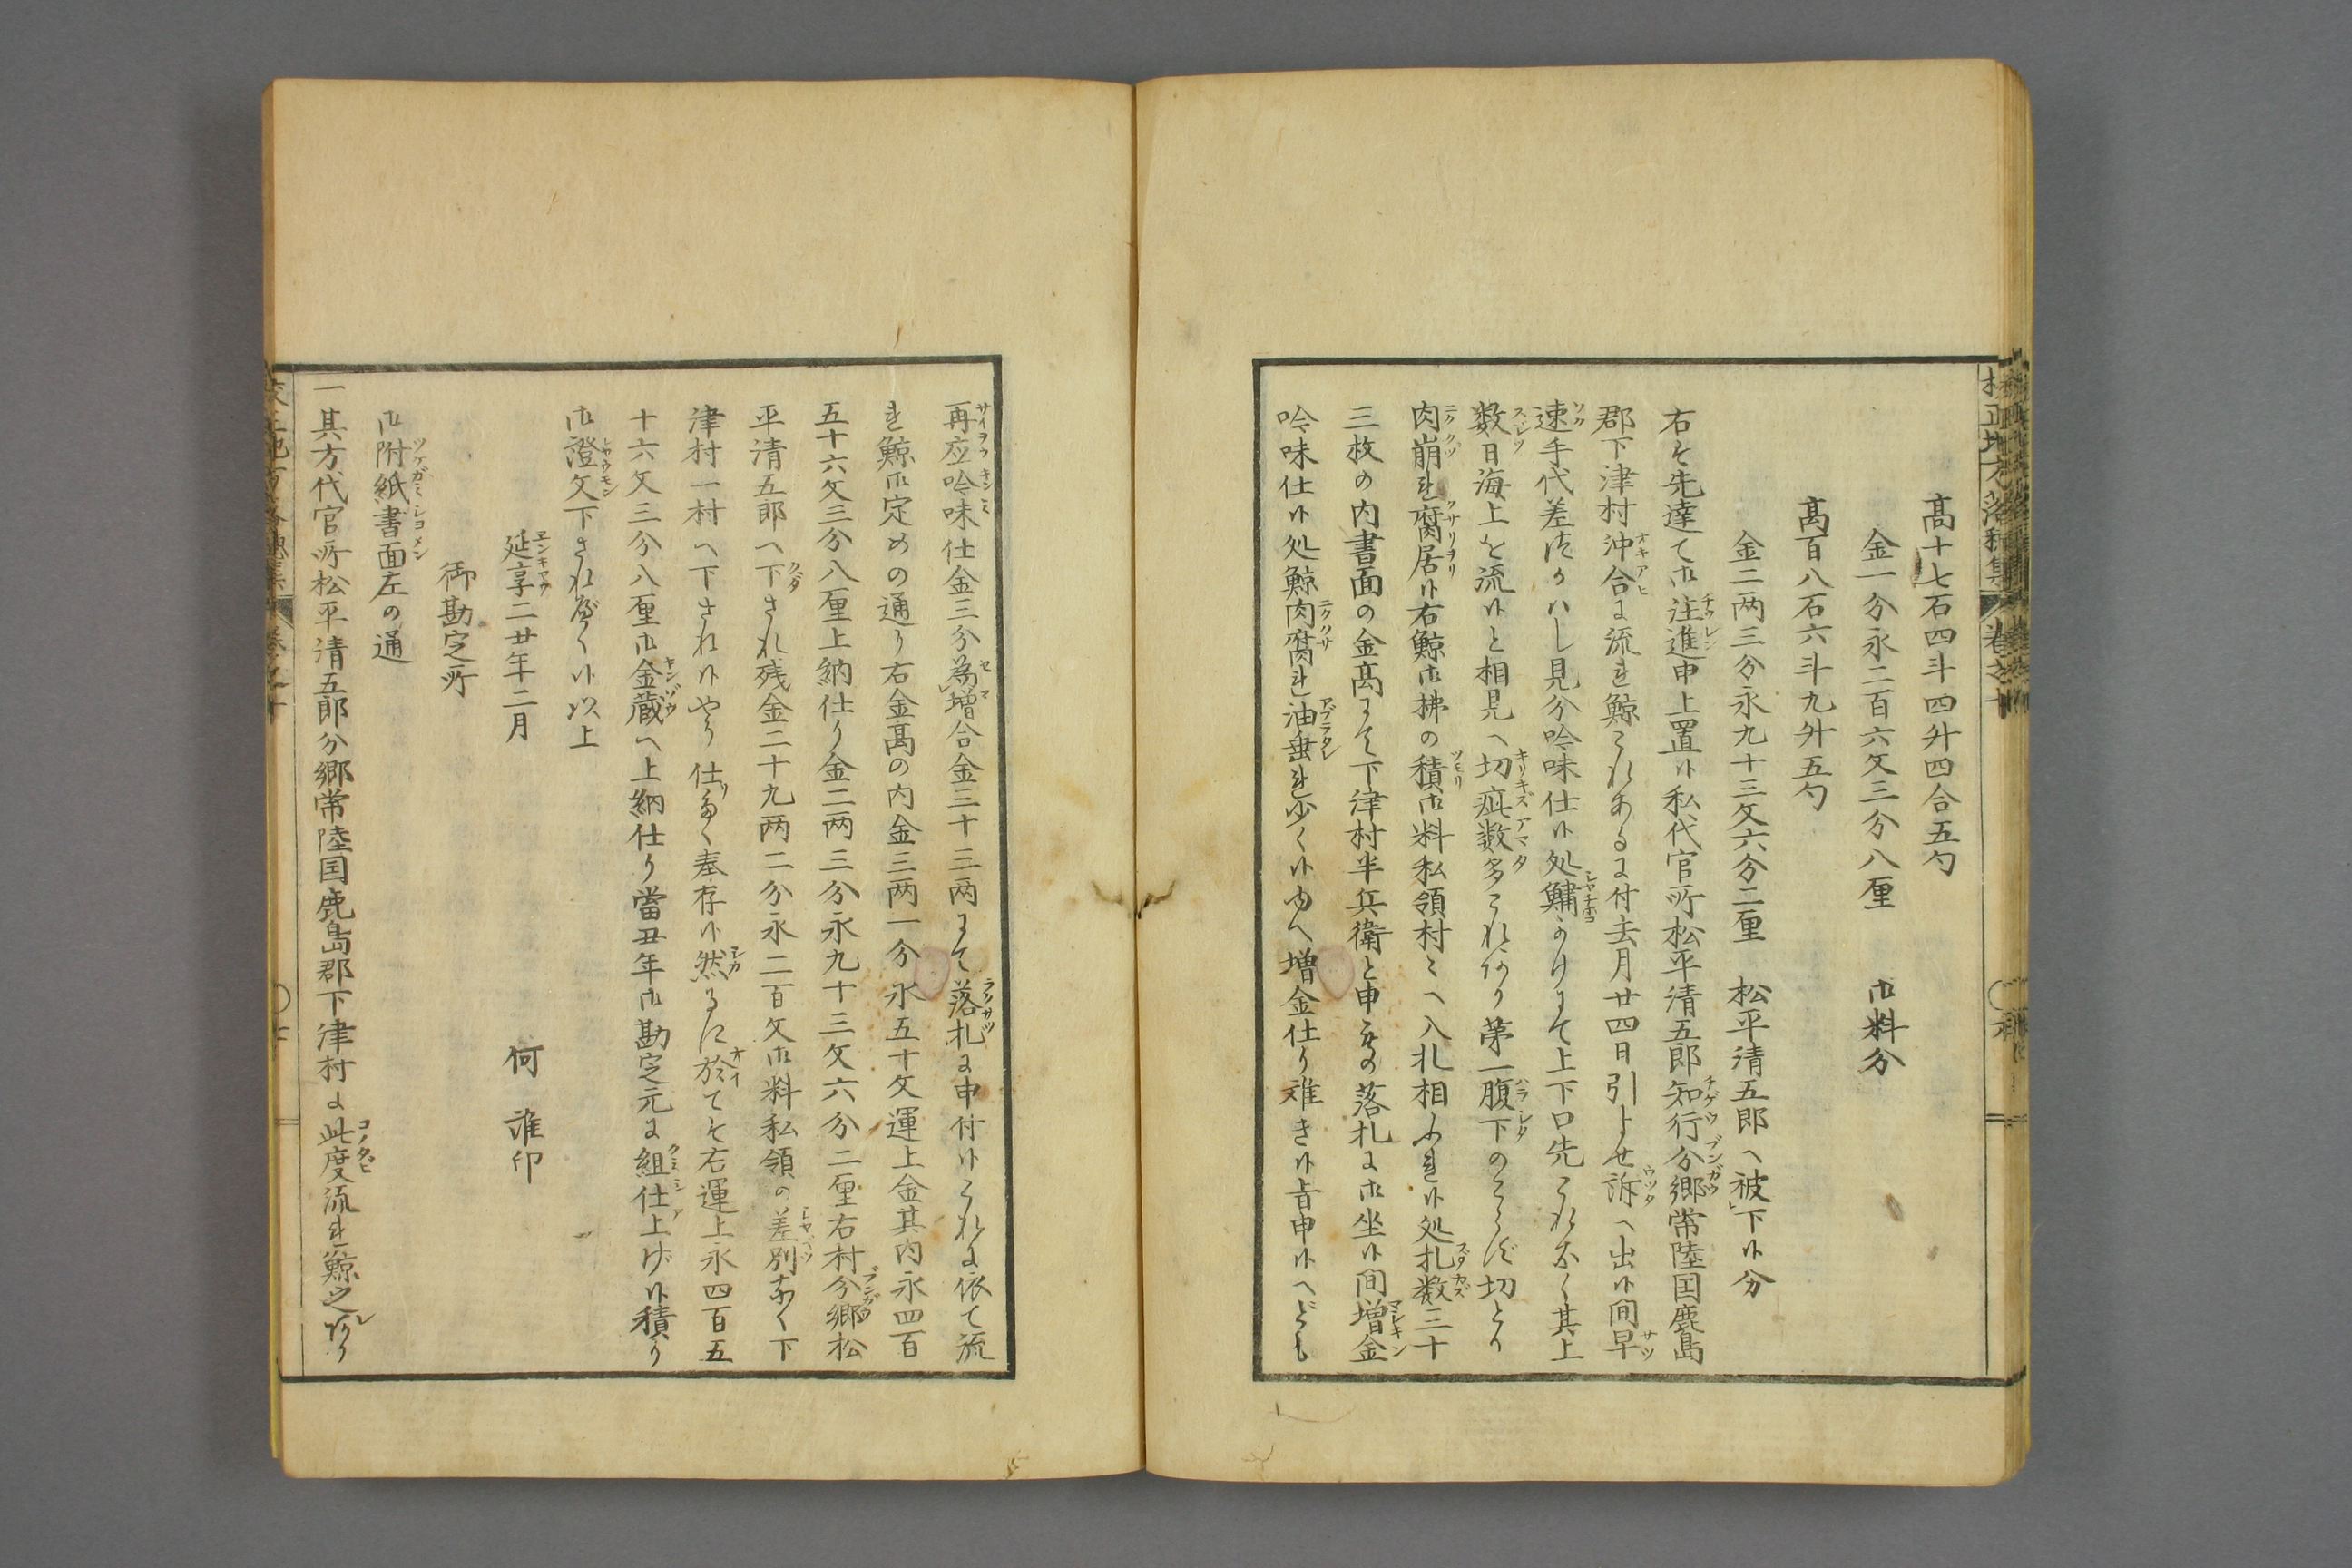 高十七石四斗四升四合五勺
金一分永二百六文三分八厘　御料分
高百八石六斗九升五勺
金二両三分永九十三文六分二厘　松平清五郎へ被下候分
右は先達て御注進申上置候私代官所松平清五郎知行分郷常陸国鹿島
郡下津村沖合に流れ鯨これあるに付去月廿四日引よせ訴へ出候間早
速手代差つかハし見分吟味仕候処鱐かけにて上下口先これなく其上
数日海上を流候と相見へ切疵数多これあり第一腹下のこらず切とり
肉崩れ腐居候右鯨御払の積御料私領村々へ入札相ふれ候処札数三十
三枚の内書面の金高にて下津村半兵衛と申もの落札に御坐候間増金
吟味仕候処鯨肉腐れ油垂れ少く候ゆへ増金仕り難き候旨申候へども
再应吟味仕金三分為増合金三十三両にて落札に申付候これに依て流
れ鯨御定めの通り右金高の内金三両一分永五十文運上金其内永四百
五十六文三分八厘上納仕り金二両三分永九十三文六分二厘右村分郷松
平清五郎へ下され残金二十九両二分永二百文御料私領の差別なく下
津村一村へ下され候やう仕りたく奉存候然るに於ては右運上永四百五
十六文三分八厘御金蔵へ上納仕り當丑年御勘定元に組仕上げ候積り
御證文下さるべく候以上
延享二廿年二月　何　誰印
御勘定所
御附紙書面左の通
一其方代官所松平清五郎分郷常陸国鹿島郡下津村に此度流れ鯨之あり